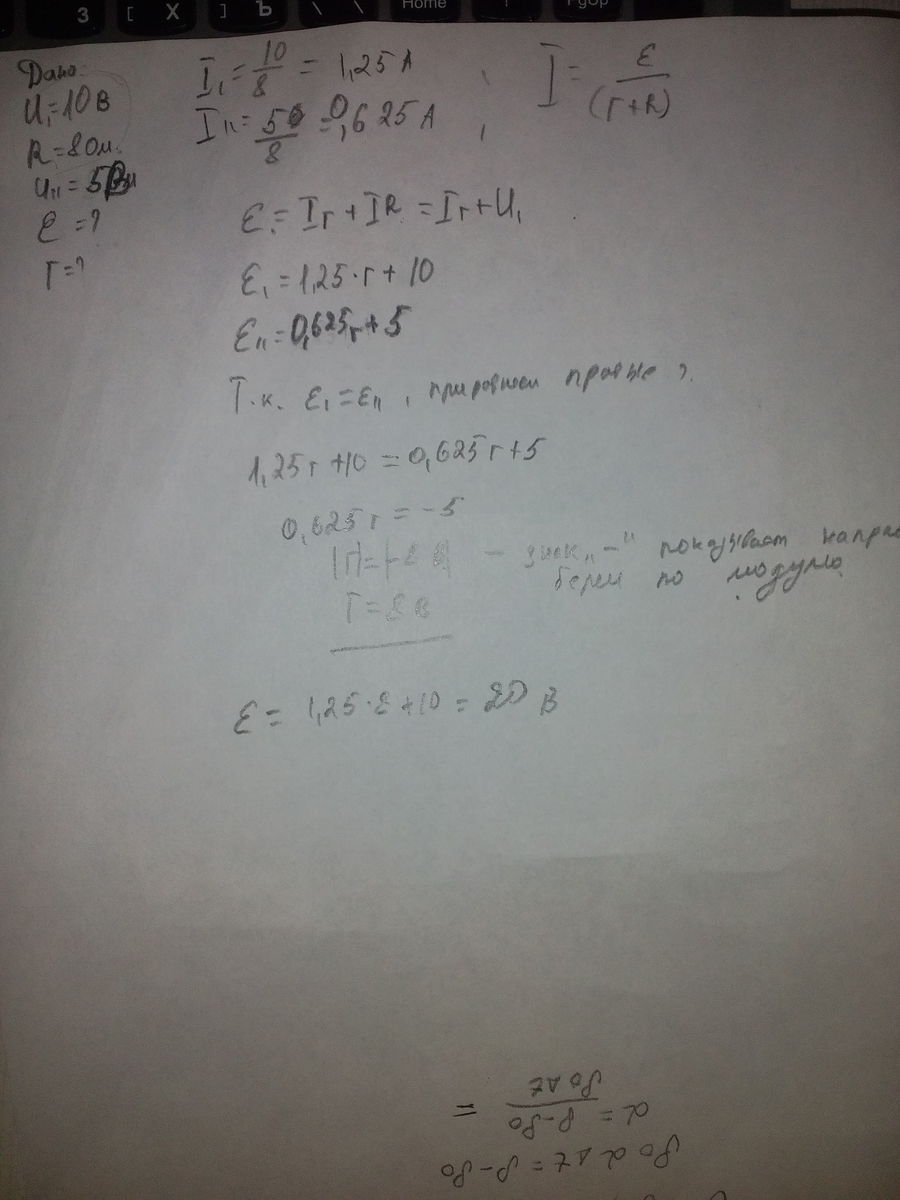 З [ Х ] Ъ \ \ Home ↑ PgUp
Дано:
U₁=10 В
R=8 Ом.
U₁₁=5В
ε=?
r=?
I₁=10/8=1,25 A , I=ε/(r+R)
I₁₁=5/8=0,625 A ,
ε=Ir+IR=Ir+U₁
ε₁=1,25·r+10
ε₁₁=0,625r+5
Т.к. ε₁=ε₁₁, приравняем правые
1,25r+10=0,625r+5
0,625r=-5
|r|=|-8 | - знак „-" показывает
берем по модулю.
r=8 В
ε=1,25·8+10=20 В
ρ₀αΔt=ρ-ρ₀
α=ρ-ρ₀/ρ₀Δt =